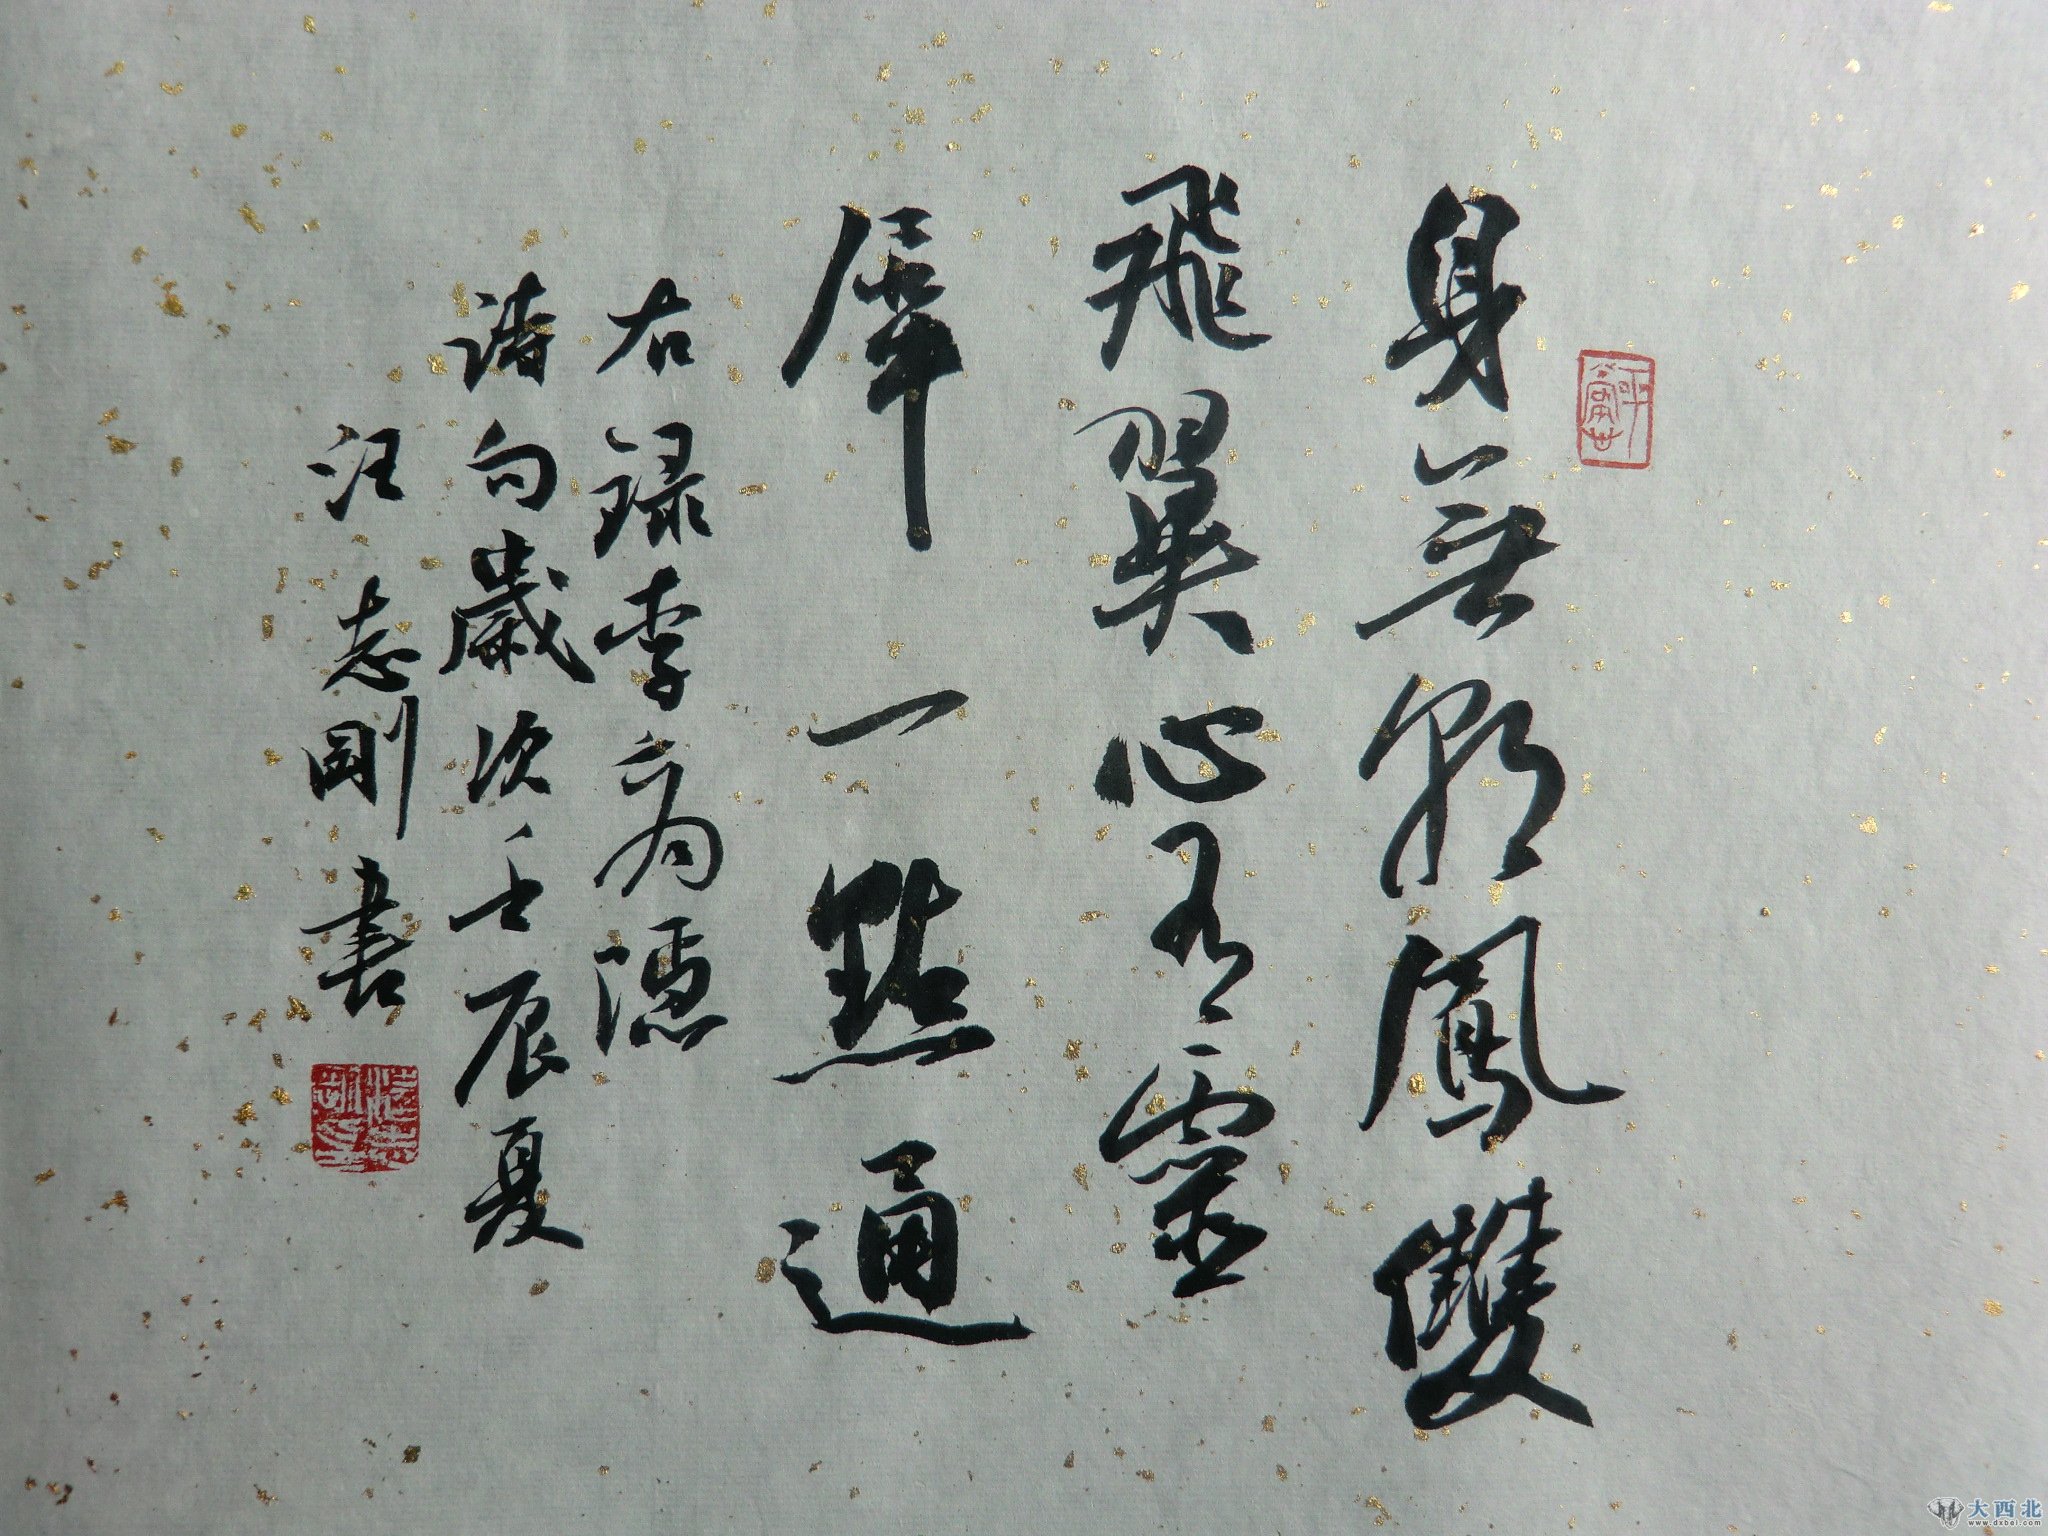 身無彩鳳雙
飛翼心有靈
犀一點通
右録李商隱
詩句歲次壬辰夏
汪志剛書
大西北
www.dxbei.com